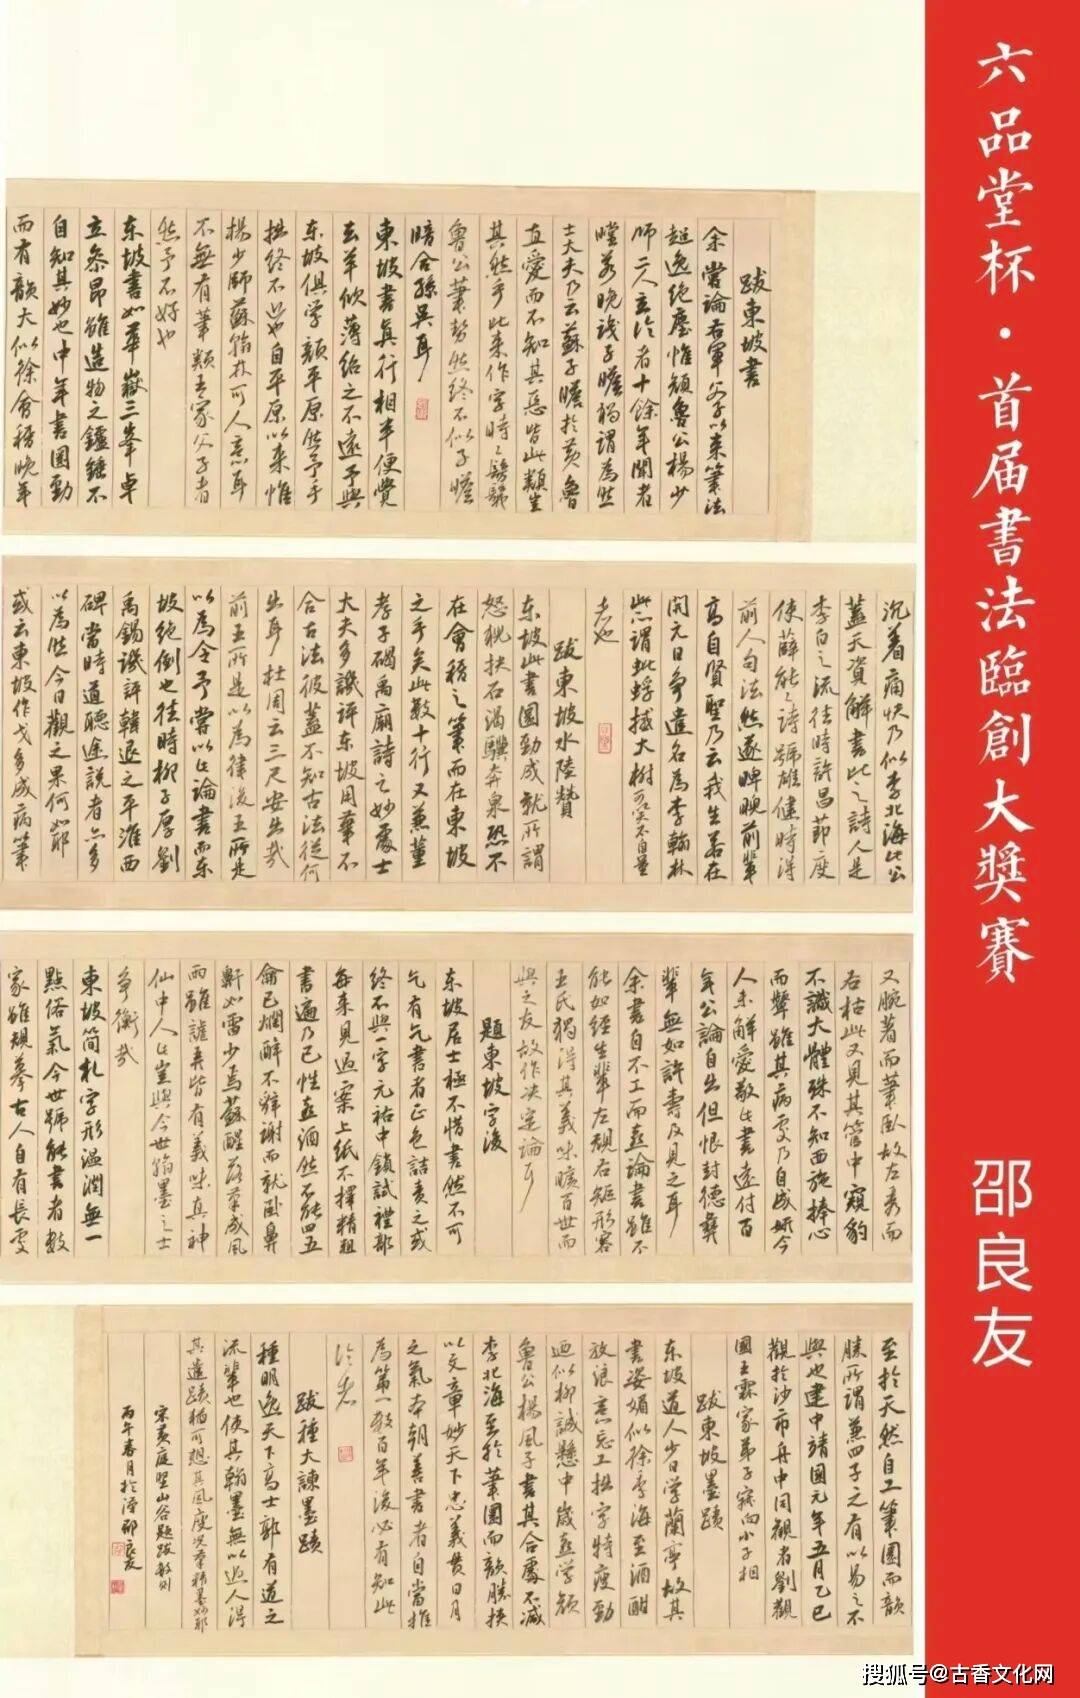 六品堂杯·首届書法臨創大獎賽
邵良友
跋東坡書
余嘗論右軍父子以來筆法
超逸絕塵惟顏魯公楊少
師二人立論者十餘年聞者
瞠若晚識子瞻獨謂為然
士大夫乃云蘇子瞻於黃魯
直愛而不知其惡皆此類豈
其然乎比來作字時時髣髴
魯公筆勢然終不似子瞻
暗合孫吳耳
東坡書真行相半便覺
去羊欣薄紹之不遠予與
東坡俱學顏平原然予手
拙終不近也自平原以來惟
楊少師蘇翰林可人意耳
不無有筆類王家父子者
然予不好也
東坡書如華嶽三峯卓
立參昂雖造物之鑪錘不
自知其妙也中年書圓勁
而有韻大似徐會稽晚年
沉着痛快乃似李北海此公
蓋天資解書比之詩人是
李白之流往時許昌節度
使薛能能詩號雄健時得
前人句法然遂睥睨前輩
高自賢聖乃云我生若在
開元日爭遣名為李翰林
此所謂蚍蜉撼大樹可笑不自量
者也
跋東坡水陸贊
東坡此書圓勁成就所謂
怒猊抉石渴驥奔泉恐不
在會稽之筆而在東坡
之手矣此數十行又兼董
孝子碣禹廟詩之妙處士
大夫多譏評東坡用筆不
合古法彼蓋不知古法從何
出耳杜周云三尺安出哉
前王所是以為律後王所是
以為令予嘗以此論書而東
坡絕倒也往時柳子厚劉
禹錫譏評韓退之平淮西
碑當時道聽途說者亦多
以為然今日觀之果何如耶
或云東坡作戈多成病筆
又腕著而筆臥故左秀而
右枯此又見其管中窺豹
不識大體殊不知西施捧心
而顰雖其病處乃自成妍今
人未解愛敬此書遠付百
年公論自出但恨封德彝
輩無如許壽及見之耳
余書自不工而喜論書雖不
能如經生輩左規右矩形容
王氏獨得其義味曠百世而
與之友故作決定論耳
題東坡字後
東坡居士極不惜書然不可
乞有乞書者正色詰責之或
終不與一字元祐中鎖試禮部
每來見過案上紙不擇精粗
書遍乃已性喜酒然不能四五
龠已爛醉不辭謝而就臥鼻
鼾如雷少焉蘇醒落筆成風
雨雖謔弄皆有義味真神
仙中人此豈與今世翰墨之士
爭衡哉
東坡簡札字形溫潤無一
點俗氣今世號能書者數
家雖規摹古人自有長處
至於天然自工筆圓而韻
勝所謂兼四子之有以易之不
與也建中靖國元年五月乙巳
觀於沙市舟中同觀者劉觀
國王霖家弟子寂向小子相
跋東坡墨蹟
東坡道人少日學蘭亭故其
書姿媚似徐季海至酒酣
放浪意忘工拙字特瘦勁
迺似柳誠懸中歲喜學顏
魯公楊風子書其合處不減
李北海至於筆圓而韻勝挾
以文章妙天下忠義貫日月
之氣本朝善書者自當推
為第一數百年後必有知此
論者
跋種大諫墨蹟
種明逸天下高士郭有道之
流輩也使其翰墨無以過人得
其遺蹟猶可想其風度況筆精墨妙耶
宋黃庭堅山谷題跋數則
丙午春月於漳邵良友
搜狐号@古香文化网